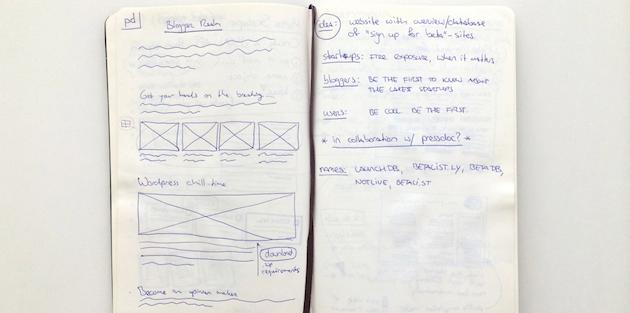 pd
Blogger Realm
Get your hands on the
Wordpress chill-time
download
requirements
Become an opinion maker
idea: website with overview/database
of "sign up for beta"-sites.
startups: FREE EXPOSURE, WHEN IT MATTERS
bloggers: BE THE FIRST TO KNOW ABOUT
THE LATEST STARTUPS
users: BE COOL BE THE FIRST.
* in collaboration w/ pressdoc? *
names: LAUNCHDB, BETALIST.LY, BETADB,
NOTLIVE, BETALIST